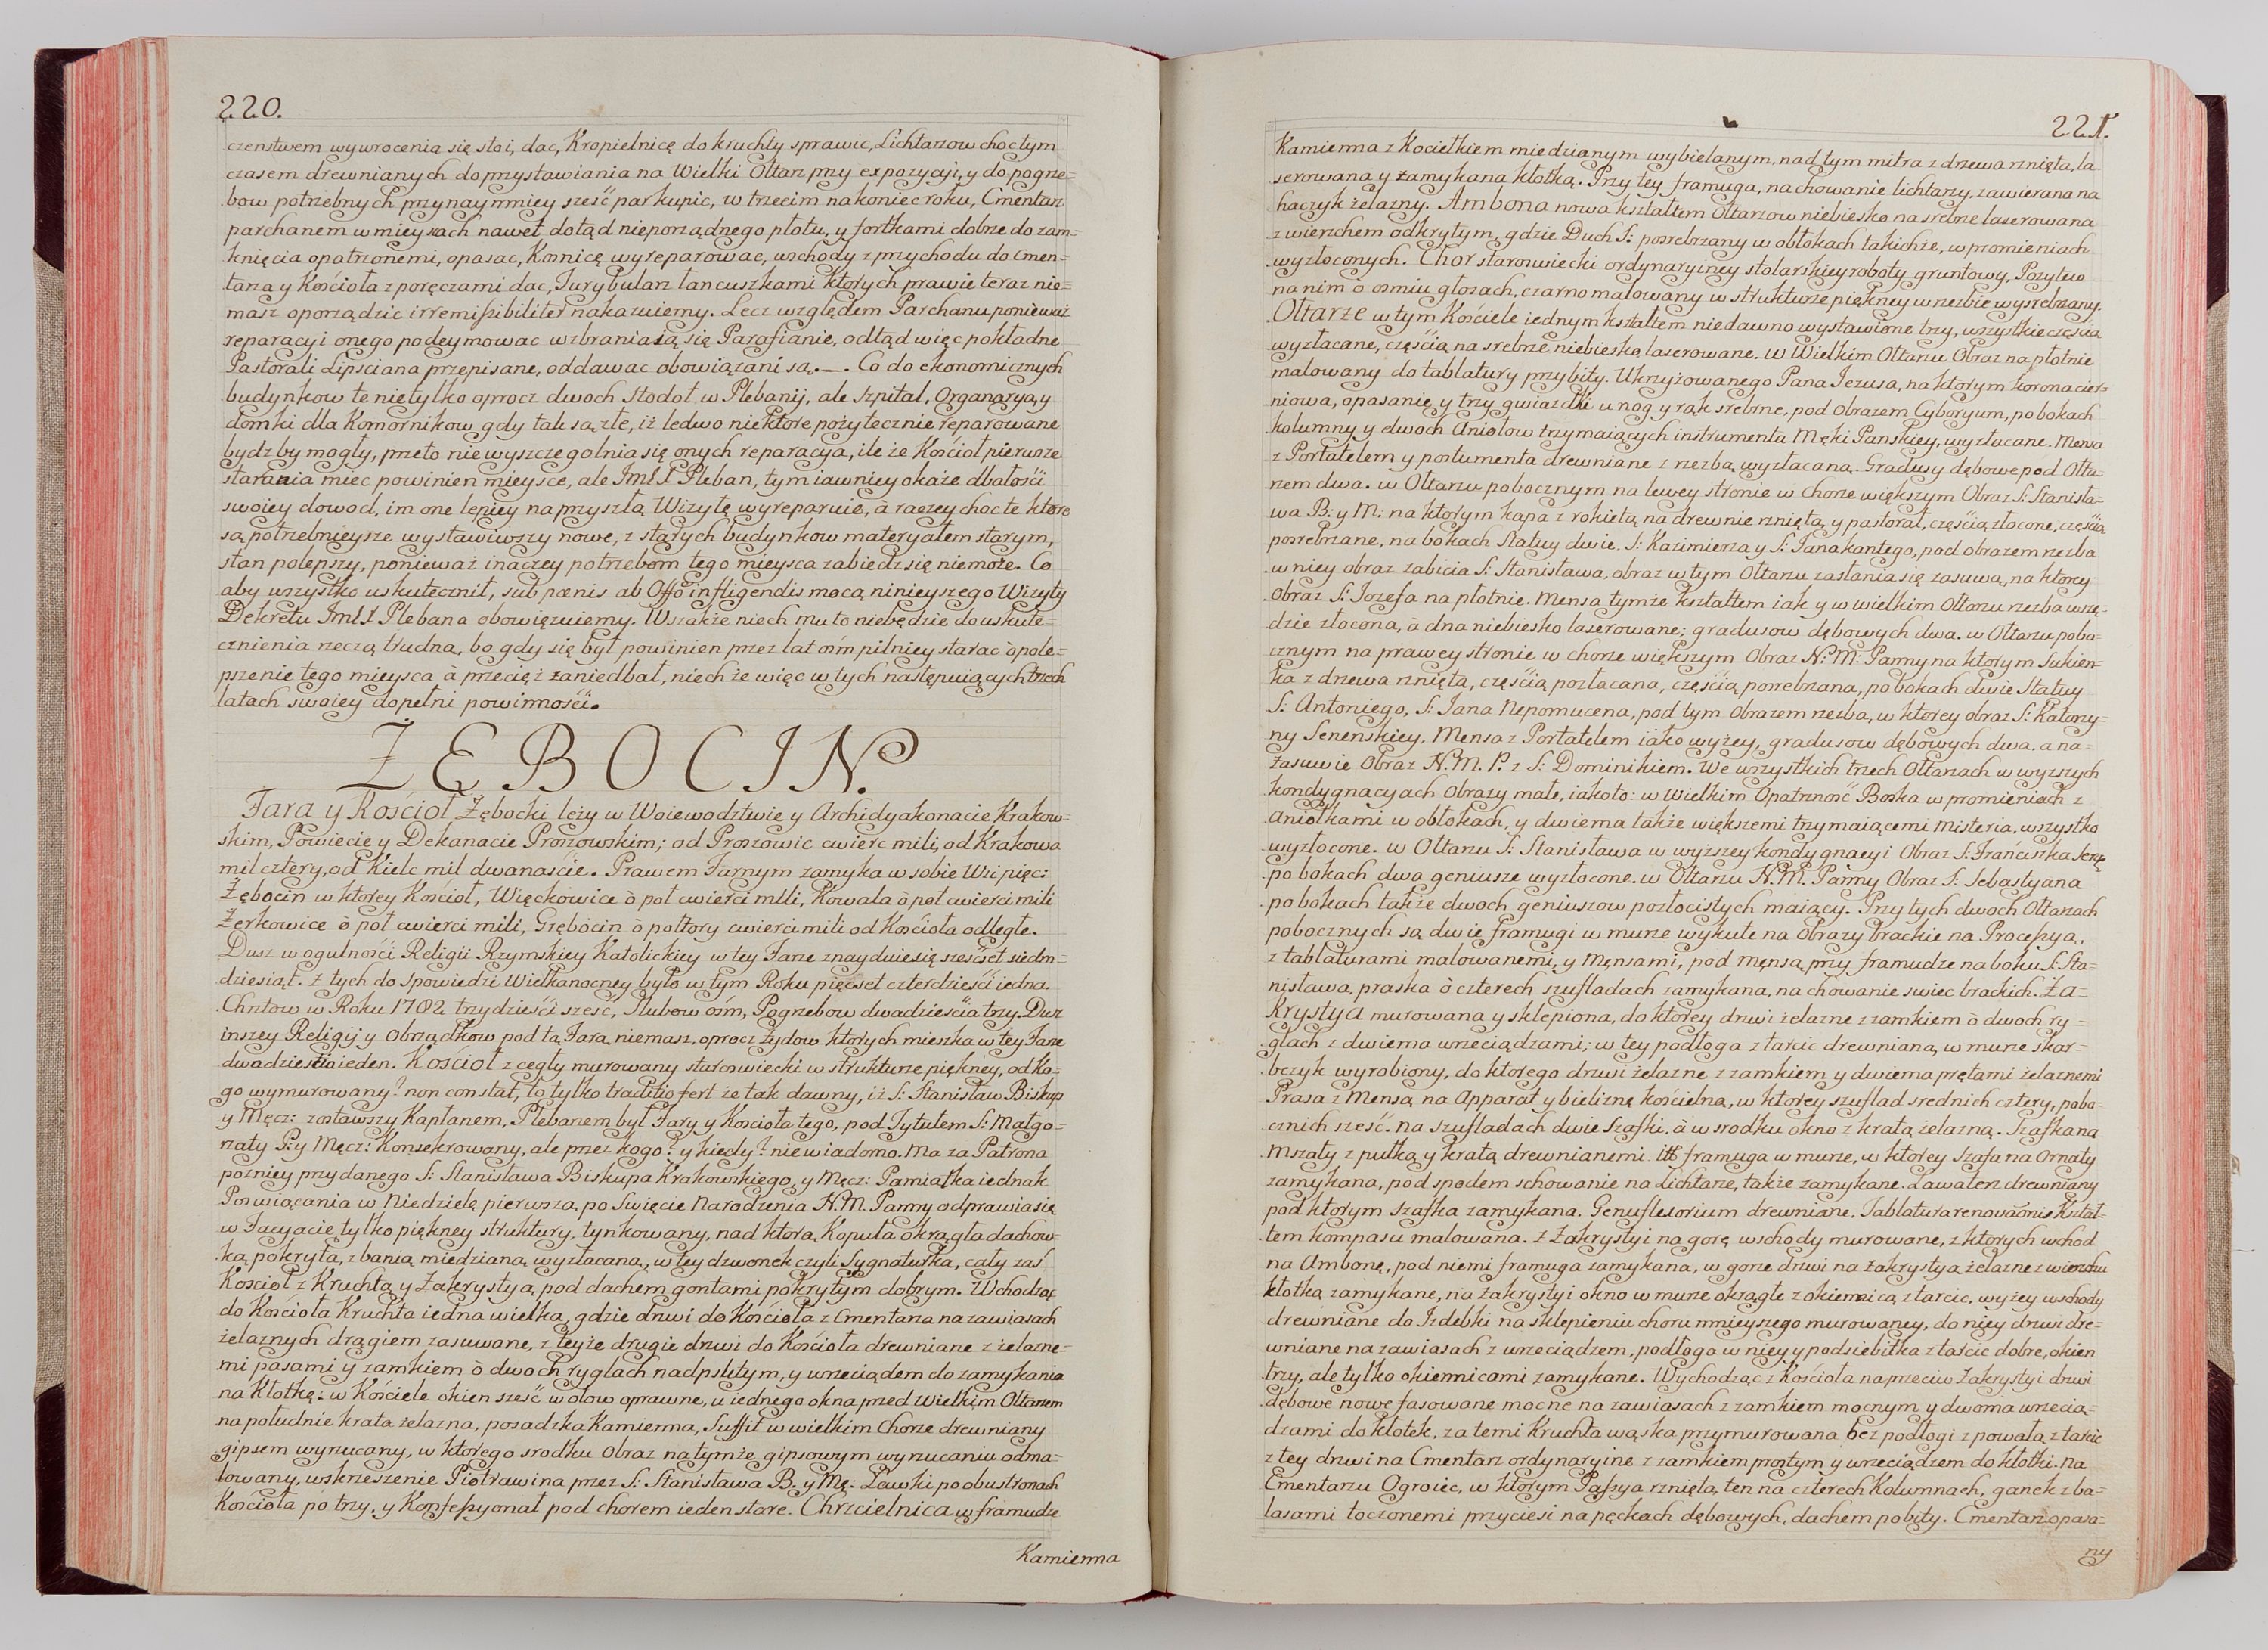 220.
czenstwem wywrocenia się stoi, dac, Kropielnicę do kruchty sprawic, Lichtarzow choc tym
czasem drewnianych do przystawiania na Wielki Ołtarz przy expozycyi, y do pogrze=
bow potrzebnych przynaymniey sześć par kupic, w trzecim na koniec roku, Cmentarz
parchanem w mieyscach nawet dotąd nieporządnego płotu, y fortkami dobrze do zam=
knięcia opatrzonemi, opasac, Kosnicę wyreparowac, wschody z przychodu do Cmen=
tarza y Kościoła z poręczami dac, Turybularz łancuszkami których prawie teraz nie=
masz oporządzic irremissibiliter nakazuiemy. Lecz względem Parchanu ponieważ
reparacyi onego podeymowac wzbraniaią się Parafianie, odtąd więc pokładne
Pastorali Lipsciana przepisane, oddawac obowiązani są. — . Co do ekonomicznych
budynkow te nie tylko oprocz dwoch Stodoł w Plebanij, ale Szpital, Organarya, y
domki dla Komornikow gdy tak są złe, iż ledwo niektore pożytecznie reparowane
bydz by mogły, przeto nie wyszczegolnia się onych reparacya, ile że Kościoł pierwsze
starania miec powinien mieysce, ale Jmć X Pleban, tym iawniey okaże dbałości
swoiey dowod, im one lepiey na przyszłą Wizytę wyreparuie, à raczey choc te ktore
są potrzebnieysze wystawiwszy nowe, z starych budynkow materyałem starym,
stan polepszy, ponieważ inaczey potrzebom tego mieysca zabiedz się nie może. Co
aby wszystko uskutecznił, sub pænis ab Offo infligendis mocą ninieyszego Wizyty
Dekretu Jmć X Plebana obowięzuiemy. Wszakże niech mu to niebędzie do uskute=
cznienia rzeczą trudną, bo gdy się był powinien przez lat ośm pilniey starac ò pole=
pszenie tego mieysca à przecięż zaniedbał, niech że więc w tych następuiących trzech
latach swoiey dopełni powinności.
ŻĘBOCIN.
Fara y Kościoł Żębocki leży w Woiewodztwie y Archidyakonacie Krakow=
skim, Powiecie y Dekanacie Proszowskim; od Proszowic cwierc mili, od Krakowa
mil cztery, od Kielc mil dwanaście. Prawem Farnym zamyka w sobie Wsi pięc:
Żębocin w ktorey Kościoł, Więckowice ò poł cwierci mili, Kowala ò poł cwierci mili
Żerkowice ò poł cwierci mili, Grębocin ò połtory cwierci mili od Kościoła odległe.
Dusz w ogulności Religii Rzymskiey Katolickiey w tey Farze znayduie się sześćset siedm=
dziesiąt. Z tych do Spowiedzi Wielkanocney było w tym Roku pięcset czterdzieści iedna.
Chrztow w Roku 1782 trzydzieści sześć, Slubow ośm, Pogrzebow dwadzieścia trzy. Dusz
inszey Religij y Obrządkow pod tą Farą niemasz, oprocz Żydow ktorych mieszka w tey Farze
dwadzieścia ieden. Kościoł z cegły murowany staroswiecki w strukturze piękney, od ko=
go wymurowany? non constat, to tylko traditio fert że tak dawny, iż S: Stanisław Biskup
y Męcz: zostawszy Kapłanem, Plebanem był Fary y Kościoła tego, pod Tytułem S: Małgo=
rzaty P: y Męcz: Konsekrowany, ale przez kogo? y kiedy? niewiadomo. Ma za Patrona
pozniey przydanego S: Stanisława Biskupa Krakowskiego, y Męcz: Pamiątka iednak
Poswiącania w Niedzielę pierwszą po Swięcie Narodzenia N.M. Panny odprawia się
w Facyacie tylko piękney struktury, tynkowany, nad ktorą Kopuła okrągła dachow=
ką pokryta, z banią miedzianą wyzłacaną, w tey dzwonek czyli Sygnaturka, cały zaś
Kościoł z Kruchtą y Zakrystyą pod dachem gontami pokrytym dobrym. Wchodząc
do Kościoła Kruchta iedna wielka, gdzie drzwi do Kościoła z Cmentarza na zawiasach
żelaznych drągiem zasuwane, z teyże drugie drzwi do Kościoła drewniane z żelazne=
mi pasami y zamkiem ò dwoch ryglach nadpsutym, y wrzeciądem do zamykania
na Kłotkę: w Kościele okien sześć w ołow oprawne, u iednego okna przed Wielkim Ołtarzem
na południe krata żelazna, posadzka Kamienna, Suffit w wielkim Chorze drewniany
gipsem wyrzucany, w ktorego srodku Obraz na tymże gipsowym wyrzucaniu odma=
lowany, wskrzeszenie Piotrawina przez S: Stanisława B. y Mę: Ławki po obu stronach
Kościoła po trzy. y Konfessyonał pod chorem ieden stare. Chrzcielnica w framudze
Kamienna
221.
Kamienna z Kociełkiem miedzianym wybielanym, nad tym mitra z drzewa rznięta, la=
serowana y zamykana kłotką. Przy tey framuga, na chowanie lichtarzy, zawierana na
haczyk żelazny. Ambona nowa kształtem Ołtarzow niebiesko na srebrze laserowana
z wierzchem odkrytym, gdzie Duch S: posrebrzany w obłokach takichże, w promieniach
wyzłoconych. Chor staroswiecki ordynaryiney stolarskiey roboty gruntowy, Pozytyw
na nim ò osmiu głosach, czarno malowany w strukturze piękney w rzezbie wysrebrzany.
Ołtarze w tym Kościele iednym kształtem niedawno wystawione trzy, wszystkie częścią
wyzłacane, częścią na srebrze niebiesko laserowane. w Wielkim Ołtarzu Obraz na płotnie
malowany do tablatury przybity. Ukrzyżowanego Pana Jezusa, na ktorym korona cier=
niowa, opasanie, y trzy gwiazdki u nog y rąk srebrne, pod Obrazem Cyboryum, po bokach
kolumny y dwoch Aniołow trzymaiących instrumenta Męki Panskiey, wyzłacane. Mensa
z Portatelem y postumenta drewniane z rzezbą wyzłacaną. Gradusy dębowe pod Ołta=
rzem dwa. w Ołtarzu pobocznym na lewey stronie w Chorze większym Obraz S: Stanisła=
wa B: y M: na ktorym kapa z rokietą na drewnie rzniętą, y pastorał, częścią złocone, częścią
posrebrzane, na bokach Statuy dwie. S: Kazimierza y S: Jana Kantego, pod obrazem rzezba
w niey obraz zabicia S: Stanisława, obraz w tym Ołtarzu zasłania się zasuwą, na ktorey
Obraz S: Jozefa na płotnie. Mensa tymże kształtem iak y w wielkim Ołtarzu rzezba wszę=
dzie złocona, à dna niebiesko laserowane; gradusow dębowych dwa. w Ołtarzu pobo=
cznym na prawey stronie w chorze większym Obraz N: M: Panny na ktorym Sukien=
ka z drzewa rznięta, częścią pozłacana, częścią posrebrzana, po bokach dwie Statuy
S: Antoniego, S: Jana Nepomucena, pod tym Obrazem rzezba, w ktorey obraz S: Katarzy=
ny Senenskiey. Mensa z Portatelem iako wyżey, gradusow dębowych dwa. a na=
zasuwie Obraz N. M. P. z S: Dominikiem. We wszystkich trzech Ołtarzach w wyższych
kondygnacyach Obrazy małe, iako to: w Wielkim Opatrzność Boska w promieniach z
Aniołkami w obłokach, y dwiema także większemi trzymaiącemi Misteria, wszystko
wyzłocone. w Ołtarzu S: Stanisława w wyższey kondygnacyi Obraz S: Franciszka Sera
po bokach dwa geniusze wyzłocone. w Ołtarzu N. M. Panny Obraz S: Sebastyana
po bokach także dwoch geniuszow pozłocistych maiący. Przy tych dwoch Ołtarzach
pobocznych są dwie framugi w murze wykute na Obrazy brackie na Processyą,
z tablaturami malowanemi, y Mensami, pod mensą przy framudze na boku S: Sta=
nisława, praska ò czterech szufladach zamykana, na chowanie swiec brackich. Za=
krystya murowana y sklepiona, do ktorey drzwi żelazne z zamkiem ò dwoch ry=
glach z dwiema wrzeciądzami; w tey podłoga z tarcic drewniana, w murze skar=
bczyk wyrobiony, do ktorego drzwi żelazne z zamkiem y dwiema prętami żelaznemi
Prasa z Mensą na Apparat y bieliznę kościelną, w ktorey szuflad srednich cztery, pobo=
cznich sześć. na szufladach dwie Szafki, à w srodku okno z kratą żelazną. Szafka na
Mszały z pułką y kratą drewnianemi. framuga w murze, w ktorey Szafa na Ornaty
zamykana, pod spodem schowanie na Lichtarze, także zamykane. Lawaterz drewniany
pod ktorym Szafka zamykana. Genuflesorium drewniane. Tablatura renovaonis Kształ=
tem kompasu malowana. Z Zakrystyi na gorę wschody murowane, z ktorych wchod
na Ambonę, pod niemi framuga zamykana, w gorze drzwi na Zakrystyą żelazne z wierzchu
kłotką zamykane, na Zakrystyi okno w murze okrągłe z okiennicą z tarcic, wyżey wschody
drewniane do Izdebki na sklepieniu choru mnieyszego murowaney, do niey drzwi dre=
wniane na zawiasach z wrzeciądzem, podłoga w niey y podsiebitka z tarcic dobre, okien
trzy, ale tylko okiennicami zamykane. Wychodząc z Kościoła naprzeciw Zakrystyi drzwi
dębowe nowe fasowane mocne na zawiasach z zamkiem mocnym y dwoma wrzecią=
dzami do kłotek, za temi Kruchta wąska przymurowana bez podłogi z powałą z tarcic
z tey drzwi na Cmentarz ordynaryine z zamkiem prostym y wrzeciądzem do kłotki. na
Cmentarzu Ogroiec, w ktorym Passya rznięta, ten na czterech Kolumnach, ganek z ba=
lasami toczonemi przyciesi na pęckach dębowych, dachem pobity. Cmentarz opasa=
ny